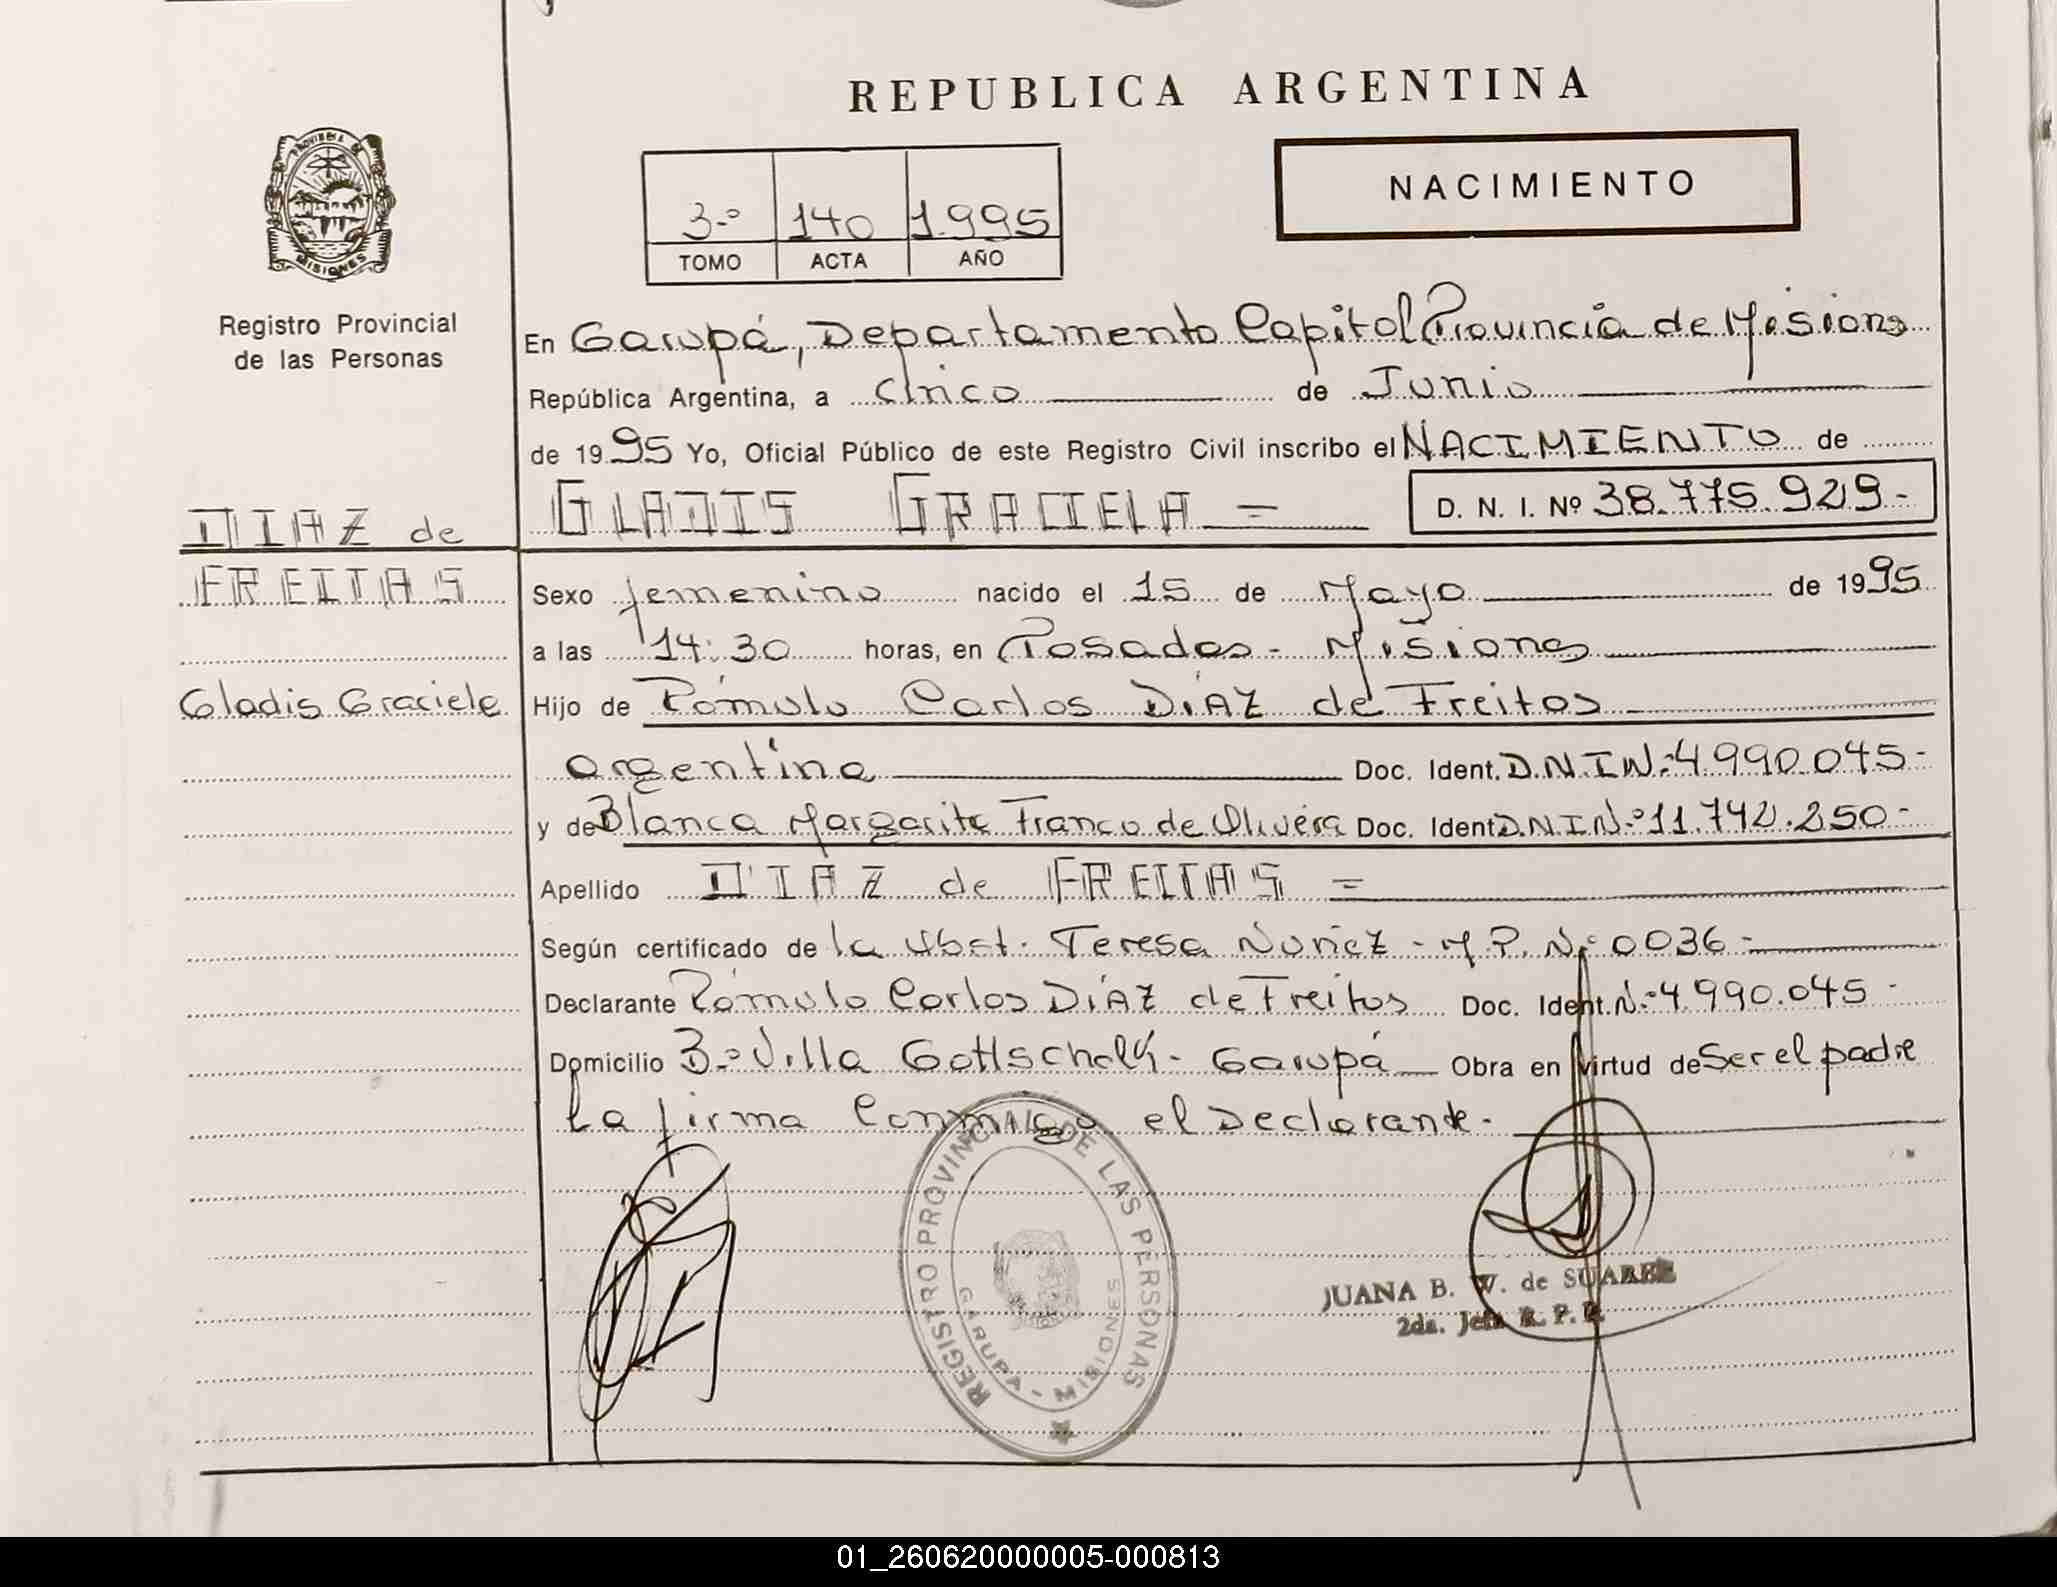 REPUBLICA ARGENTINA
PROVINCIA DE
MISIONES
Registro Provincial
de las Personas
3.º 140 1.995
TOMO ACTA AÑO
NACIMIENTO
En Garupá, Departamento Capital Provincia de Misiones
República Argentina, a cinco de Junio
de 1995 Yo, Oficial Público de este Registro Civil inscribo el NACIMIENTO de
DIAZ de
GLADIS GRACIELA = D. N. I. Nº 38.775.929.-
FREITAS
Sexo femenino nacido el 15 de Mayo de 1995
a las 14:30 horas, en Posadas - Misiones
Gladis Graciela
Hijo de Rómulo Carlos DÍAZ de Freitas
argentina Doc. Ident. D.N.I N.º 4.990.045-
y de Blanca Margarita Franco de Olivera Doc. Ident D.N.I N.º 11.742.250-
Apellido DÍAZ de FREITAS =
Según certificado de la Obst. Teresa Nuñez - M.P. N.º 0036-
Declarante Rómulo Carlos DÍAZ de Freitas Doc. Ident. N.º 4.990.045-
Domicilio B.º Villa Gottschalk - Garupá Obra en virtud de Ser el padre
La firma Conmigo el Declarante.-
REGISTRO PROVINCIAL DE LAS PERSONAS
GARUPA - MISIONES
JUANA B. W. de SUAREZ
2da. Jefa R. P. P.
01_260620000005-000813